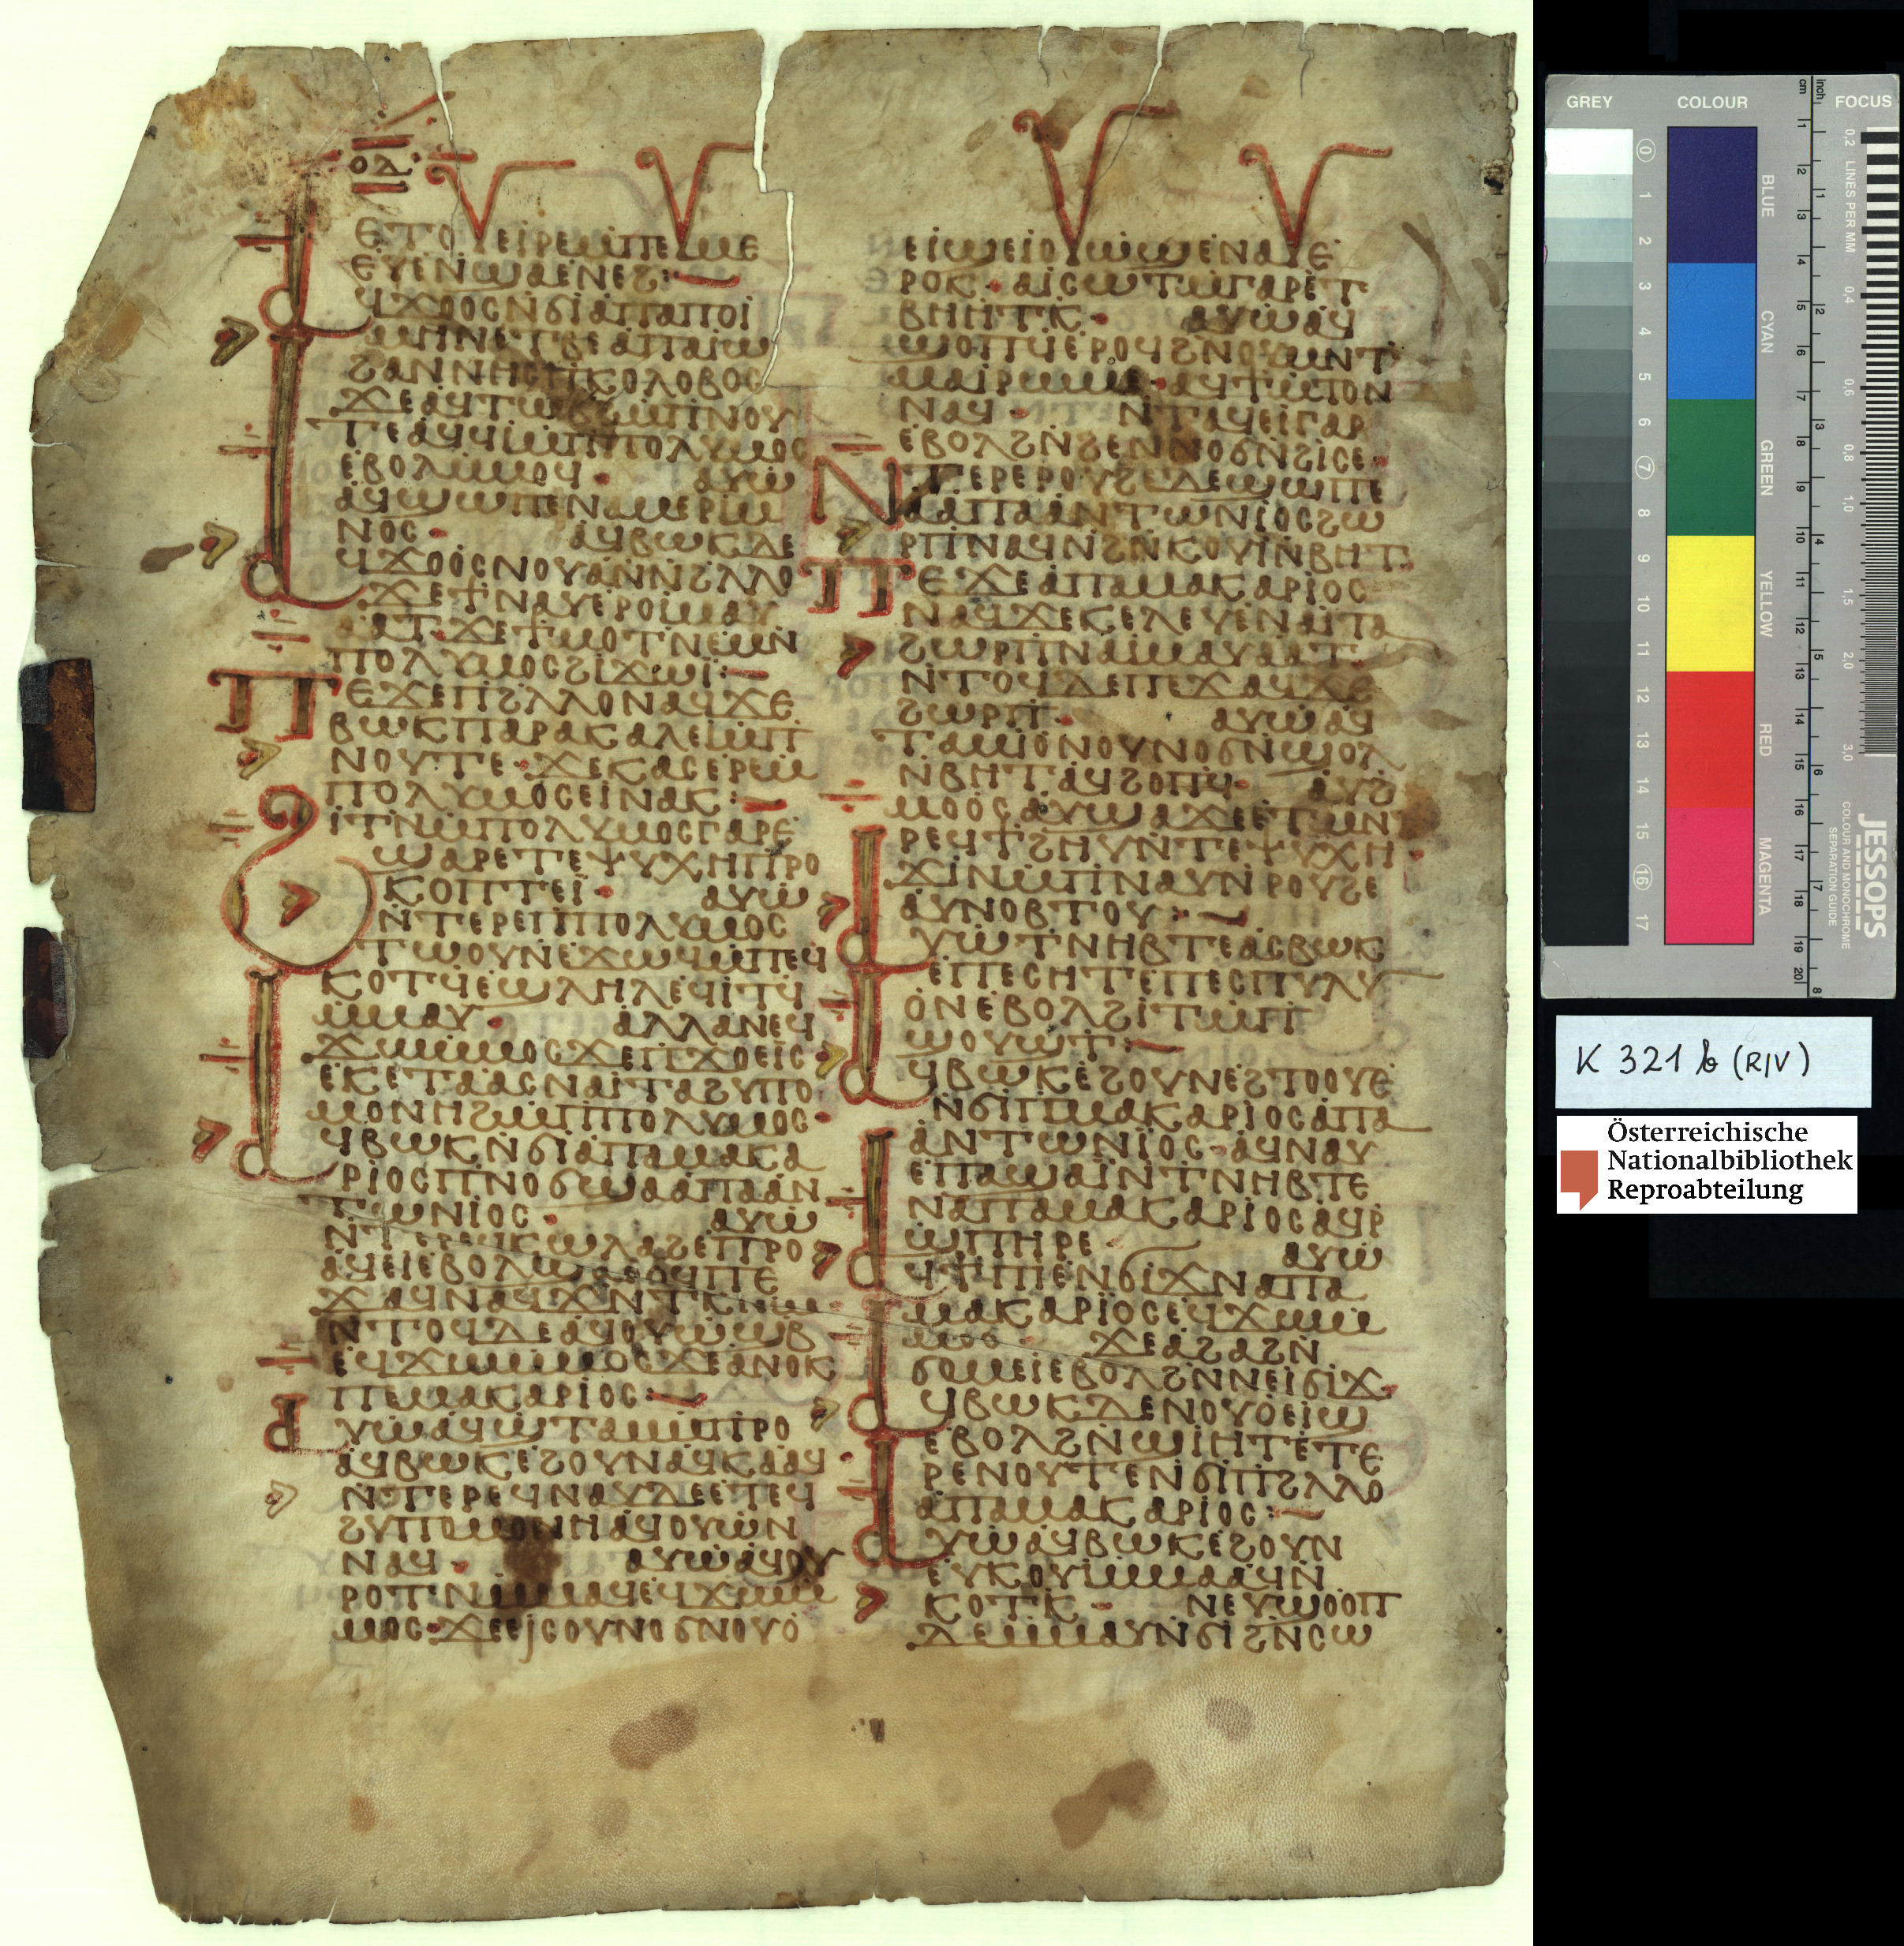 ⲟⲇ
ⲉⲧⲟⲩⲉⲓⲣⲉⲙ̄ⲡⲉⲙⲉ
ⲉⲩⲉⲓⲛ̄ϣⲁⲉⲛⲉϩ:
ⲁϥϫⲟⲟⲥⲛ̄ϭⲓⲁⲡⲁⲡⲟⲓ
ⲙⲏⲛⲉⲧⲃⲉⲁⲡⲁⲓⲱ
ϩⲁⲛⲛⲏⲥⲡⲕⲟⲗⲟⲃⲟⲥ
ϫⲉⲁϥⲧⲱⲃϩⲙ̄ⲡⲛⲟⲩ
ⲧⲉⲁϥϥⲓⲙ̄ⲡⲡⲟⲗⲩⲙⲟⲥ
ⲉⲃⲟⲗⲙ̄ⲙⲟϥ· ⲁⲩⲱ
ⲁϥϣⲱⲡⲉⲛⲁⲙⲉⲣⲓⲙ
ⲛⲟⲥ· ⲁϥⲃⲱⲕⲇⲉ
ⲁϥϫⲟⲟⲥⲛⲟⲩⲁⲛⲛ̄ϩⲗⲗⲟ
ϫⲉϯⲛⲁⲩⲉⲣⲟⲓⲙⲁⲩ
ⲁⲁⲧ·ϫⲉϯⲙⲟⲧⲛⲉⲙⲛ̄
ⲡⲟⲗⲩⲙⲟⲥϩⲓϫⲱⲓ:
ⲡⲉϫⲉⲡϩⲗⲗⲟⲛⲁϥϫⲉ
ⲃⲱⲕⲡⲁⲣⲁⲕⲁⲗⲉⲓⲙ̄ⲡ
ⲛⲟⲩⲧⲉ·ϫⲉⲕⲁⲥⲉⲣⲉⲙ
ⲡⲟⲗⲩⲙⲟⲥⲉⲓⲛⲁⲕ:
ϩⲓⲧⲛ̄ⲙ̄ⲡⲟⲗⲩⲙⲟⲥⲅⲁⲣⲉ
ϣⲁⲣⲉⲧⲉⲯⲩⲭⲏⲡⲣⲟ
ⲕⲟⲡⲧⲉⲓ· ⲁⲩⲱ
ⲛ̄ⲧⲉⲣⲉⲡⲡⲟⲗⲩⲙⲟⲥ
ⲧⲱⲟⲩⲛⲉϫⲱϥⲙ̄ⲡⲉϥ
ⲕⲟⲧϥⲉϣⲗⲏⲗⲉϥⲓⲧϥ
ⲙ̄ⲙⲁⲩ· ⲁⲗⲗⲁⲛⲉϥ
ϫⲱⲙ̄ⲙⲟⲥϫⲉⲡϫⲟⲉⲓⲥ
ⲉⲕⲉⲧⲁⲁⲥⲛⲁⲓⲧⲁϩⲩⲡⲟ
ⲙⲟⲛⲏϩⲙ̄ⲡⲡⲟⲗⲩⲙⲟⲥ·
ⲁϥⲃⲱⲕⲛ̄ϭⲓⲁⲡⲁⲙⲁⲕⲁ
ⲣⲓⲟⲥⲡⲛⲟϭϣⲁⲁⲡⲁⲁⲛ
ⲧⲱⲛⲓⲟⲥ· ⲁⲩⲱ
ⲛ̄ⲧⲉⲣⲉϥⲕⲱⲗⲁϩⲉⲡⲣⲟ
ⲁϥⲉⲓⲉⲃⲟⲗϣⲁⲣⲟϥⲡⲉ
ϫⲁϥⲛⲁϥϫⲛ̄ⲧⲕⲛⲓⲙ
ⲛ̄ⲧⲟϥⲇⲉⲁϥⲟⲩⲱϣⲃ
ⲉϥϫⲱⲙ̄ⲙⲟⲥϫⲉⲁⲛⲟⲕ
ⲡⲉⲙⲁⲕⲁⲣⲓⲟⲥ:
ⲁⲩⲱⲁϥϣⲧⲁⲙⲙ̄ⲡⲣⲟ
ⲁϥⲃⲱⲕⲉϩⲟⲩⲛⲁϥⲕⲁⲁϥ·
ⲛ̄ⲧⲉⲣⲉϥⲛⲁⲩⲇⲉⲉⲧⲉϥ
ϩⲩⲡⲟⲙⲟⲛⲏⲁϥⲟⲩⲱⲛ
ⲛⲁϥ· ⲁⲩⲱⲁϥⲟⲩ
ⲣⲟⲧⲛⲙ̄ⲙⲁϥⲉϥϫⲱⲙ̄
ⲙⲟⲥ·ϫⲉⲉⲓⲥⲟⲩⲛⲟϭⲛⲟⲩⲟ
ⲉⲓϣⲉⲓⲟⲩⲱϣⲉⲛⲁⲩⲉ
ⲣⲟⲕ·ⲁⲓⲥⲱⲧⲙ̄ⲅⲁⲣⲉⲧ
ⲃⲏⲏⲧⲕ· ⲁⲩⲱⲁϥ
ϣⲟⲡϥⲉⲣⲟϥϩⲛⲟⲩⲙⲛⲧ
ⲙⲁⲓⲣⲱⲙⲉ·ⲁϥϯⲙ̄ⲧⲟⲛ
ⲛⲁϥ· ⲛ̄ⲧⲁϥⲉⲓⲅⲁⲣ
ⲉⲃⲟⲗϩⲛ̄ϩⲉⲛⲛⲟϭⲛ̄ϩⲓⲥⲉ·
ⲛ̄ⲧⲉⲣⲉⲣⲟⲩϩⲉⲇⲉϣⲱⲡⲉ
ⲁⲁⲡⲁⲁⲛⲧⲱⲛⲓⲟⲥϩⲱ
ⲣⲡ̄ⲛⲁϥⲛ̄ϩⲛ̄ⲕⲟⲩⲓⲛ̄ⲃⲏⲧ·
ⲡⲉϫⲉⲁⲡⲁⲙⲁⲕⲁⲣⲓⲟⲥ
ⲛⲁϥϫⲉⲕⲉⲗⲉⲩⲉⲛⲁⲓⲧⲁ
ϩⲱⲣⲡ̄ⲛⲁⲓⲙⲁⲩⲁⲁⲧ·
ⲛ̄ⲧⲟϥⲇⲉⲡⲉϫⲁϥϫⲉ
ϩⲱⲣⲡ̄· ⲁⲩⲱⲁϥ
ⲧⲁⲙⲓⲟⲛⲟⲩⲛⲟϭⲛ̄ϣⲟⲗ
ⲛ̄ⲃⲏⲧⲁϥϩⲟⲡϥ· ⲁⲩϩ
ⲙⲟⲟⲥⲁⲩϣⲁϫⲉⲉⲧⲙⲛ̄ⲧ
ⲣⲉϥϯϩⲏⲩⲛⲧⲉⲯⲩⲭⲏ·
ϫⲓⲛⲙ̄ⲡⲛⲁⲩⲛ̄ⲣⲟⲩϩⲉ
ⲁⲩⲛⲟⲃⲧⲟⲩ:
ⲁⲩⲱⲧⲛⲏⲃⲧⲉⲁⲥⲃⲱⲕ
ⲉⲡⲉⲥⲏⲧⲉⲡⲉⲥⲡⲩⲗⲩ
ⲟⲛⲉⲃⲟⲗϩⲓⲧⲙ̄ⲡ
ϣⲟⲩϣⲧ:
ⲁϥⲃⲱⲕⲉϩⲟⲩⲛⲉϩⲧⲟⲟⲩⲉ
ⲛ̄ϭⲓⲡⲙⲁⲕⲁⲣⲓⲟⲥⲁⲡⲁ
ⲁⲛⲧⲱⲛⲓⲟⲥ·ⲁϥⲛⲁⲩ
ⲉⲡⲁϣⲁⲓⲛ̄ⲧⲛⲏⲃⲧⲉ
ⲛⲁⲡⲁⲙⲁⲕⲁⲣⲓⲟⲥⲁϥⲣ̄
ϣⲡⲏⲣⲉ· ⲁⲩⲱ
ⲁϥϯⲡⲓⲉⲛϭⲓϫⲛⲁⲡⲁ
ⲙⲁⲕⲁⲣⲓⲟⲥⲉϥϫⲱⲙ̄
ⲙⲟⲥ· ϫⲉⲁϩⲁϩⲛ̄
ϭⲟⲙⲉⲓⲉⲃⲟⲗϩⲛ̄ⲛⲉⲓϭⲓϫ·
ⲁϥⲃⲱⲕⲇⲉⲛⲟⲩⲟⲉⲓϣ
ⲉⲃⲟⲗϩⲛ̄ϣⲓⲏⲧⲉⲧⲉ
ⲣⲉⲛⲟⲩⲧⲉⲛ̄ϭⲓⲡϩⲗⲗⲟ
ⲁⲡⲁⲙⲁⲕⲁⲣⲓⲟⲥ:
ⲁⲩⲱⲁϥⲃⲱⲕⲉϩⲟⲩⲛ
ⲉⲩⲕⲟⲩⲓⲙ̄ⲙⲁⲁϥⲛ̄
ⲕⲟⲧⲕ· ⲛⲉⲩϣⲟⲟⲡ
ⲇⲉⲙ̄ⲙⲁⲩⲛ̄ϭⲓϩⲛ̄ⲥⲱ
GREY
COLOUR
FOCUS
BLUE
CYAN
GREEN
YELLOW
RED
MAGENTA
LINES PER MM
JESSOPS
COLOUR AND MONOCHROME
SEPARATION GUIDE
K 321 b (R/V)
Österreichische
Nationalbibliothek
Reproabteilung